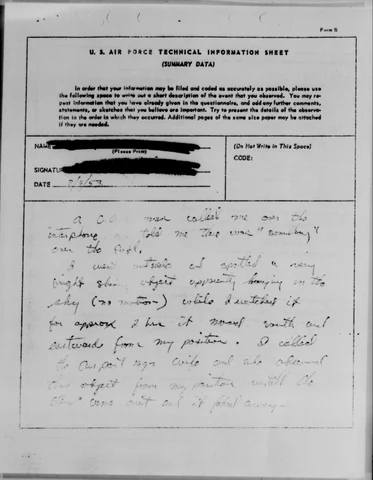 Form B
U. S. AIR FORCE TECHNICAL INFORMATION SHEET
(SUMMARY DATA)
In order that your information may be filed and coded as accurately as possible, please use
the following space to write out a short description of the event that you observed. You may re-
peat information that you have already given in the questionnaire, and add any further comments,
statements, or sketches that you believe are important. Try to present the details of the observa-
tion in the order in which they occurred. Additional pages of the same size paper may be attached
if they are needed.
NAME
(Please Print)
SIGNATUR
DATE
(Do Not Write in This Space)
CODE:
A man called me over the
interphone and told me there was "something"
over the
I went outside and spotted a very
bright shiny object apparently hanging in the
sky (no motion) while I watched it
for approx 1 hr it moved south and
eastwards from my position. I called
the and observed
this object from my position until the
came out and it faded away.